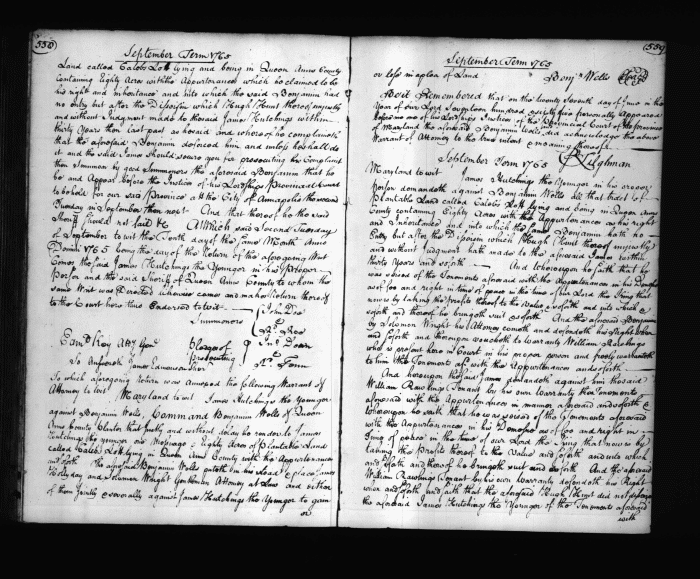 558
September Term 1765
Land called Calebs Lott lying and being in Queen Anns County
Containing Eighty Acres with the Appurtenances which he claimed to be
his right and inheritance and into which the said Benjamin had
no entry but after the Disseisin which Hugh Hunt thereof unjustly
and without Judgment made to the said James Hutchings within
thirty Years then last past as he said and whereof he complaineth
that the aforesaid Benjamin deforced him and unless he shall do
it and the said James should secure you for prosecuting his Complaint
then Summon by good Summoners the aforesaid Benjamin that he
be and Appear before the Justices of his Lordships Provincial Court
to be held for our said Province at the City of Annapolis the second
Tuesday in September then next And that thereof he the said
Sheriff should not fail &c At Which said Second Tuesday
of September to wit the Tenth day of the same Month Anno
Domini 1765 being the day of the Return of the aforegoing Writ
Comes the said James Hutchings the Younger in his proper
Person and the said Sheriff of Queen Anns County to whom the
same Writ was directed comes and makes Return thereof
to the Court here thus Endorsed to wit
John Doe
Summoners
Rd. Roe
Pledges of
Prosecuting
Jno. Denn
Rd. Fenn
To which aforegoing return was annexed the following Warrant of
Attorney to wit Maryland to wit James Hutchings the Younger
against Benjamin Wells, Command Benjamin Wells of Queen
Anns County Planter that justly and without delay he render to James
Hutchings the younger one Messuage & Eighty Acres of Plantable Land
called Calebs Lott lying in Queen Anns County with the Appurtenances
and soforth the aforesaid Benjamin Wells putteth in his stead & place James
Hollyday and Solomon Wright Gentlemen Attorneys at Law and either
of them jointly & severally against James Hutchings the Younger to gain
or
559
September Term 1765
or lose in a plea of Land Benja. Wells
Be it Remembered that on the twenty Seventh day of in the
Year of our Lord Seventeen hundred sixty five personally appeared
before me one of his Lordships Justices of the Provincial Court of the province
of Maryland the aforesaid Benjamin Wells and did acknowledge the above
Warrant of Attorney to the true intent & meaning thereof
R Tilghman
September Term 1765
Maryland to wit James Hutchings the Younger in his proper
Person demandeth against Benjamin Wells all that tract of
Plantable Land called Calebs Lott lying and being in Queen Anns
County containing Eighty Acres with the Appurtenances as his right
and Inheritance and into which the same Benjamin hath not
Entry but after the Disseisin which Hugh Hunt thereof unjustly
and without Judgment hath made to the aforesaid James within
thirty Years and soforth And whereupon he saith that he
was seized of the Tenements aforesaid with the Appurtenances in his Demesne
as of fee and right in time of peace in the time of our Lord the King that
now is by taking the profits thereof to the Value & soforth and into which &
soforth and thereof he bringeth suit & soforth And the aforesaid Benjamin
by Solomon Wright his Attorney cometh and defendeth his Right when
and soforth and thereupon voucheth to Warranty William Rawlings
who is present here in Court in his proper person and freely warranteth
to him the Tenements afd. with the Appurtenances and soforth
And hereupon the said James demandeth against him the said
William Rawlings Tenant by his own Warranty the Tenements
aforesaid with the Appurtenances in manner aforesaid and soforth &
whereupon he saith that he was seized of the Tenements aforesaid
with the Appurtenances in his Demesne as of fee and right in
time of peace in the time of our Lord the King that now is by
taking the Profits thereof to the Value and soforth and into which
and soforth and thereof he bringeth suit and soforth And the aforesaid
William Rawlings Tenant by his own Warranty defendeth his Right
when and soforth and saith that the aforesaid Hugh Hunt did not disseize
the aforesaid James Hutchings the Younger of the Tenements aforesaid
with